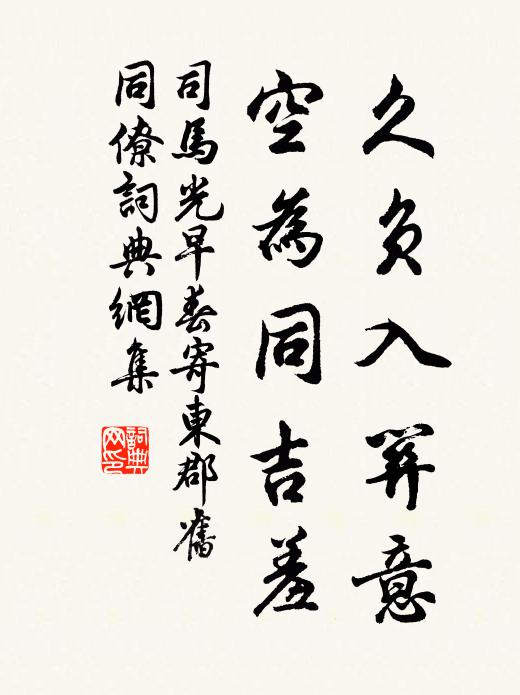 久負入羿意
空為同吉羞
司馬光早春寄東郡舊
同僚詞典網集
詞典網印